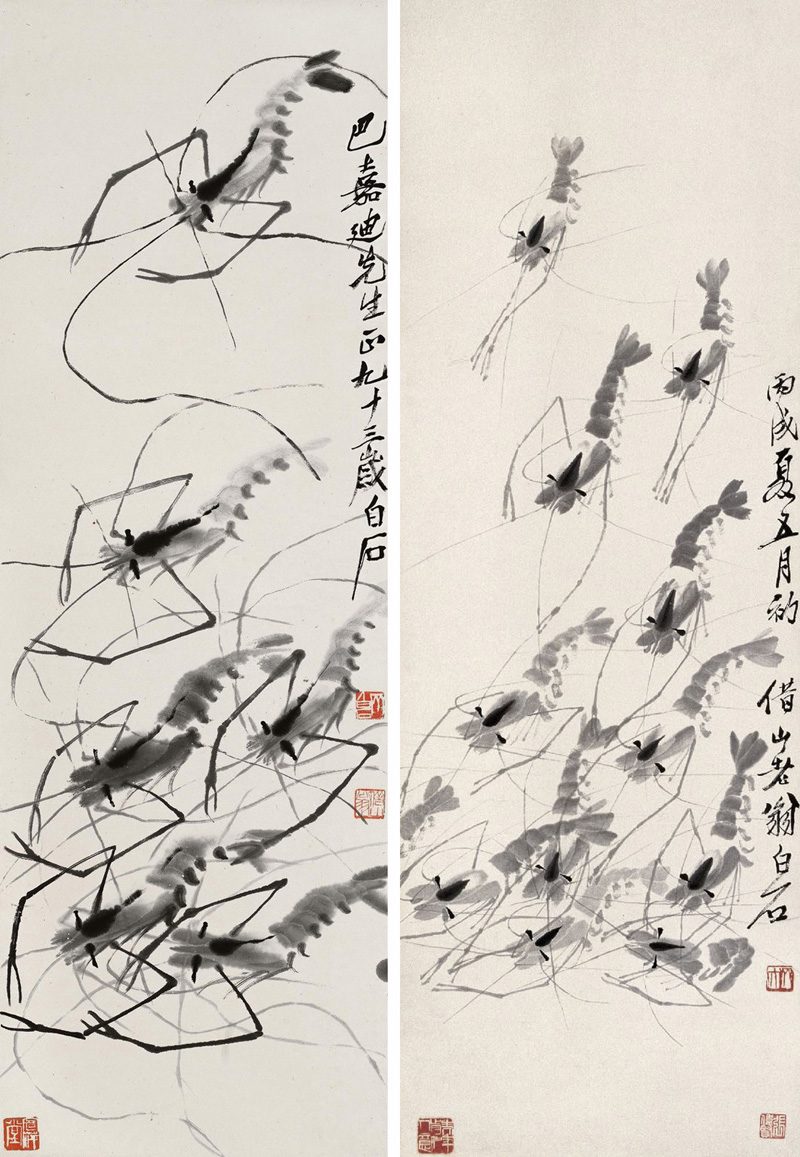 巴嘉迪先生正九十三歲白石
丙戌夏五月初
借山老翁白石